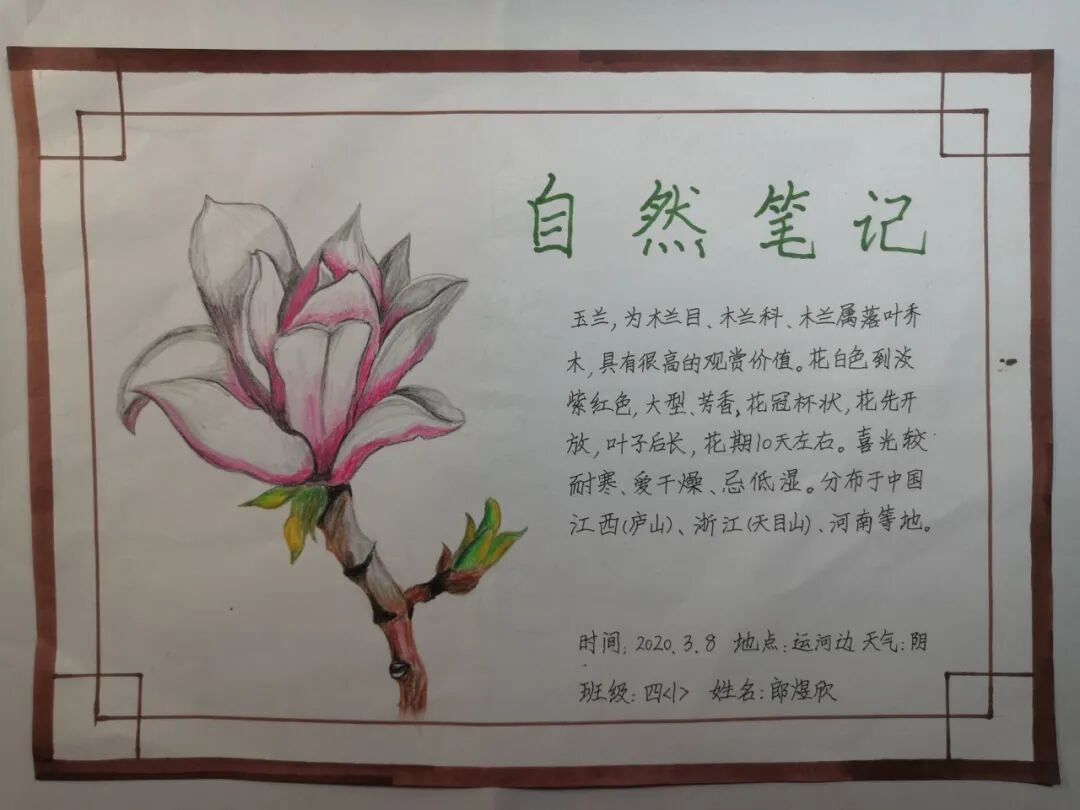 自然笔记
玉兰,为木兰目、木兰科、木兰属落叶乔
木,具有很高的观赏价值。花白色到淡
紫红色,大型、芳香,花冠杯状,花先开
放,叶子后长,花期10天左右。喜光较
耐寒、爱干燥、忌低湿。分布于中国
江西(庐山)、浙江(天目山)、河南等地。
时间:2020.3.8 地点:运河边 天气:阴
班级:四<1> 姓名:郎煜欣